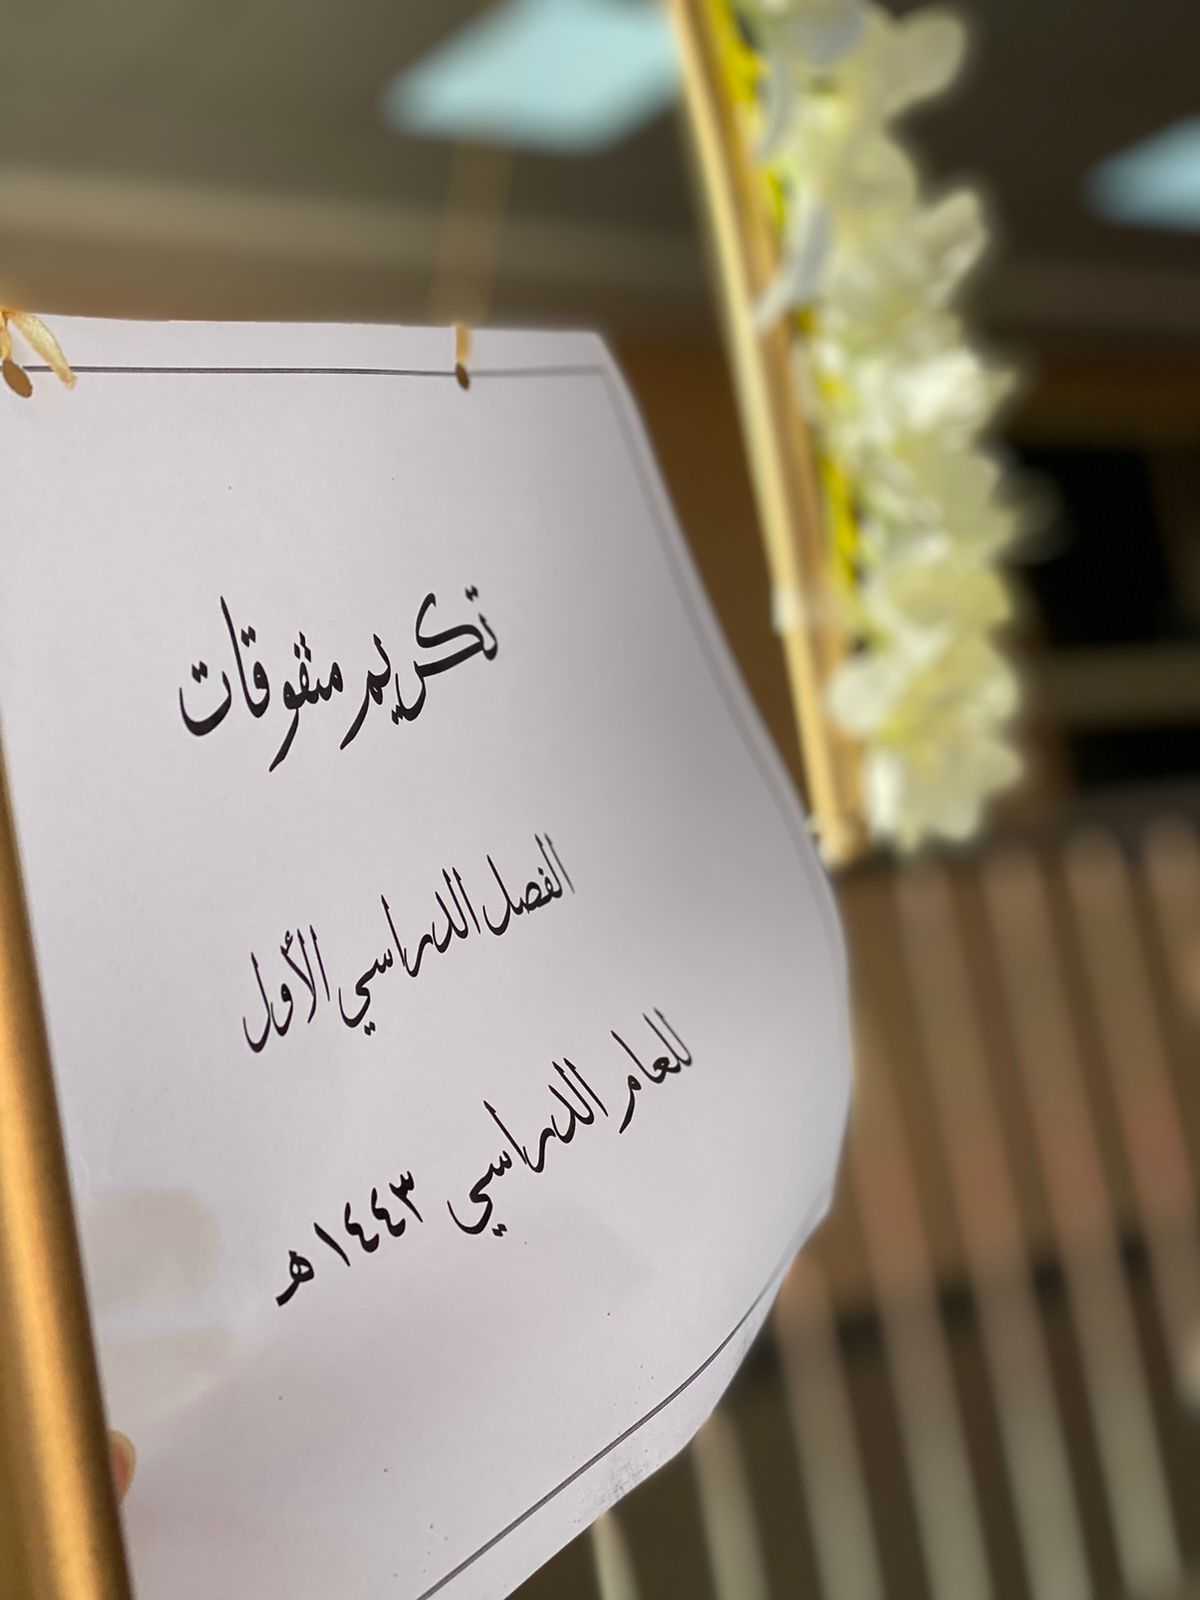 تكريم متفوقات
الفصل الدراسي الأول
للعام الدراسي ١٤٤٣هـ